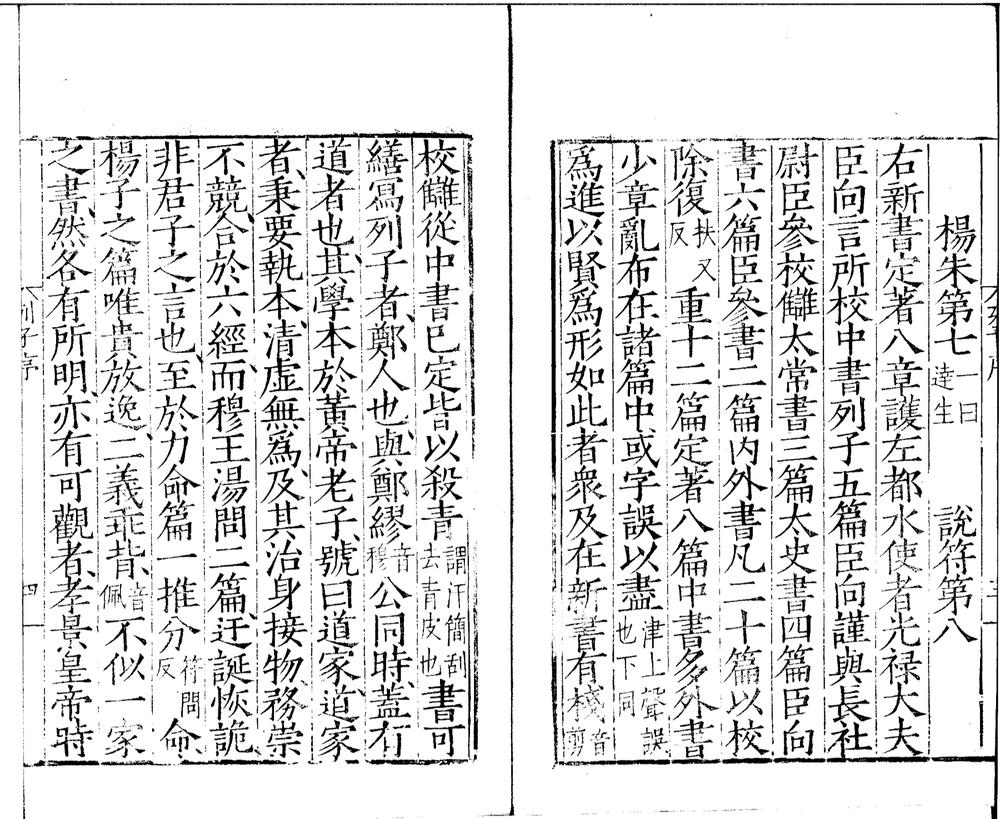 楊朱第七一曰達生　說符第八
右新書定著八章護左都水使者光禄大夫
臣向言所校中書列子五篇臣向謹與長社
尉臣參校讎太常書三篇太史書四篇臣向
書六篇臣參書二篇内外書凡二十篇以校
除復扶又反重十二篇定著八篇中書多外書
少章亂布在諸篇中或字誤以盡津上聲誤也下同
爲進以賢爲形如此者衆及在新書有棧音剪
校讎從中書已定皆以殺青謂汗簡刮去青皮也書可
繕寫列子者鄭人也與鄭繆音穆公同時蓋有
道者也其學本於黃帝老子號曰道家道家
者秉要執本清虛無爲及其治身接物務崇
不競合於六經而穆王湯問二篇迂誕恢詭
非君子之言也至於力命篇一推分符問反命
楊子之篇唯貴放逸二義乖背音佩不似一家
之書然各有所明亦有可觀者孝景皇帝時
列子序
四